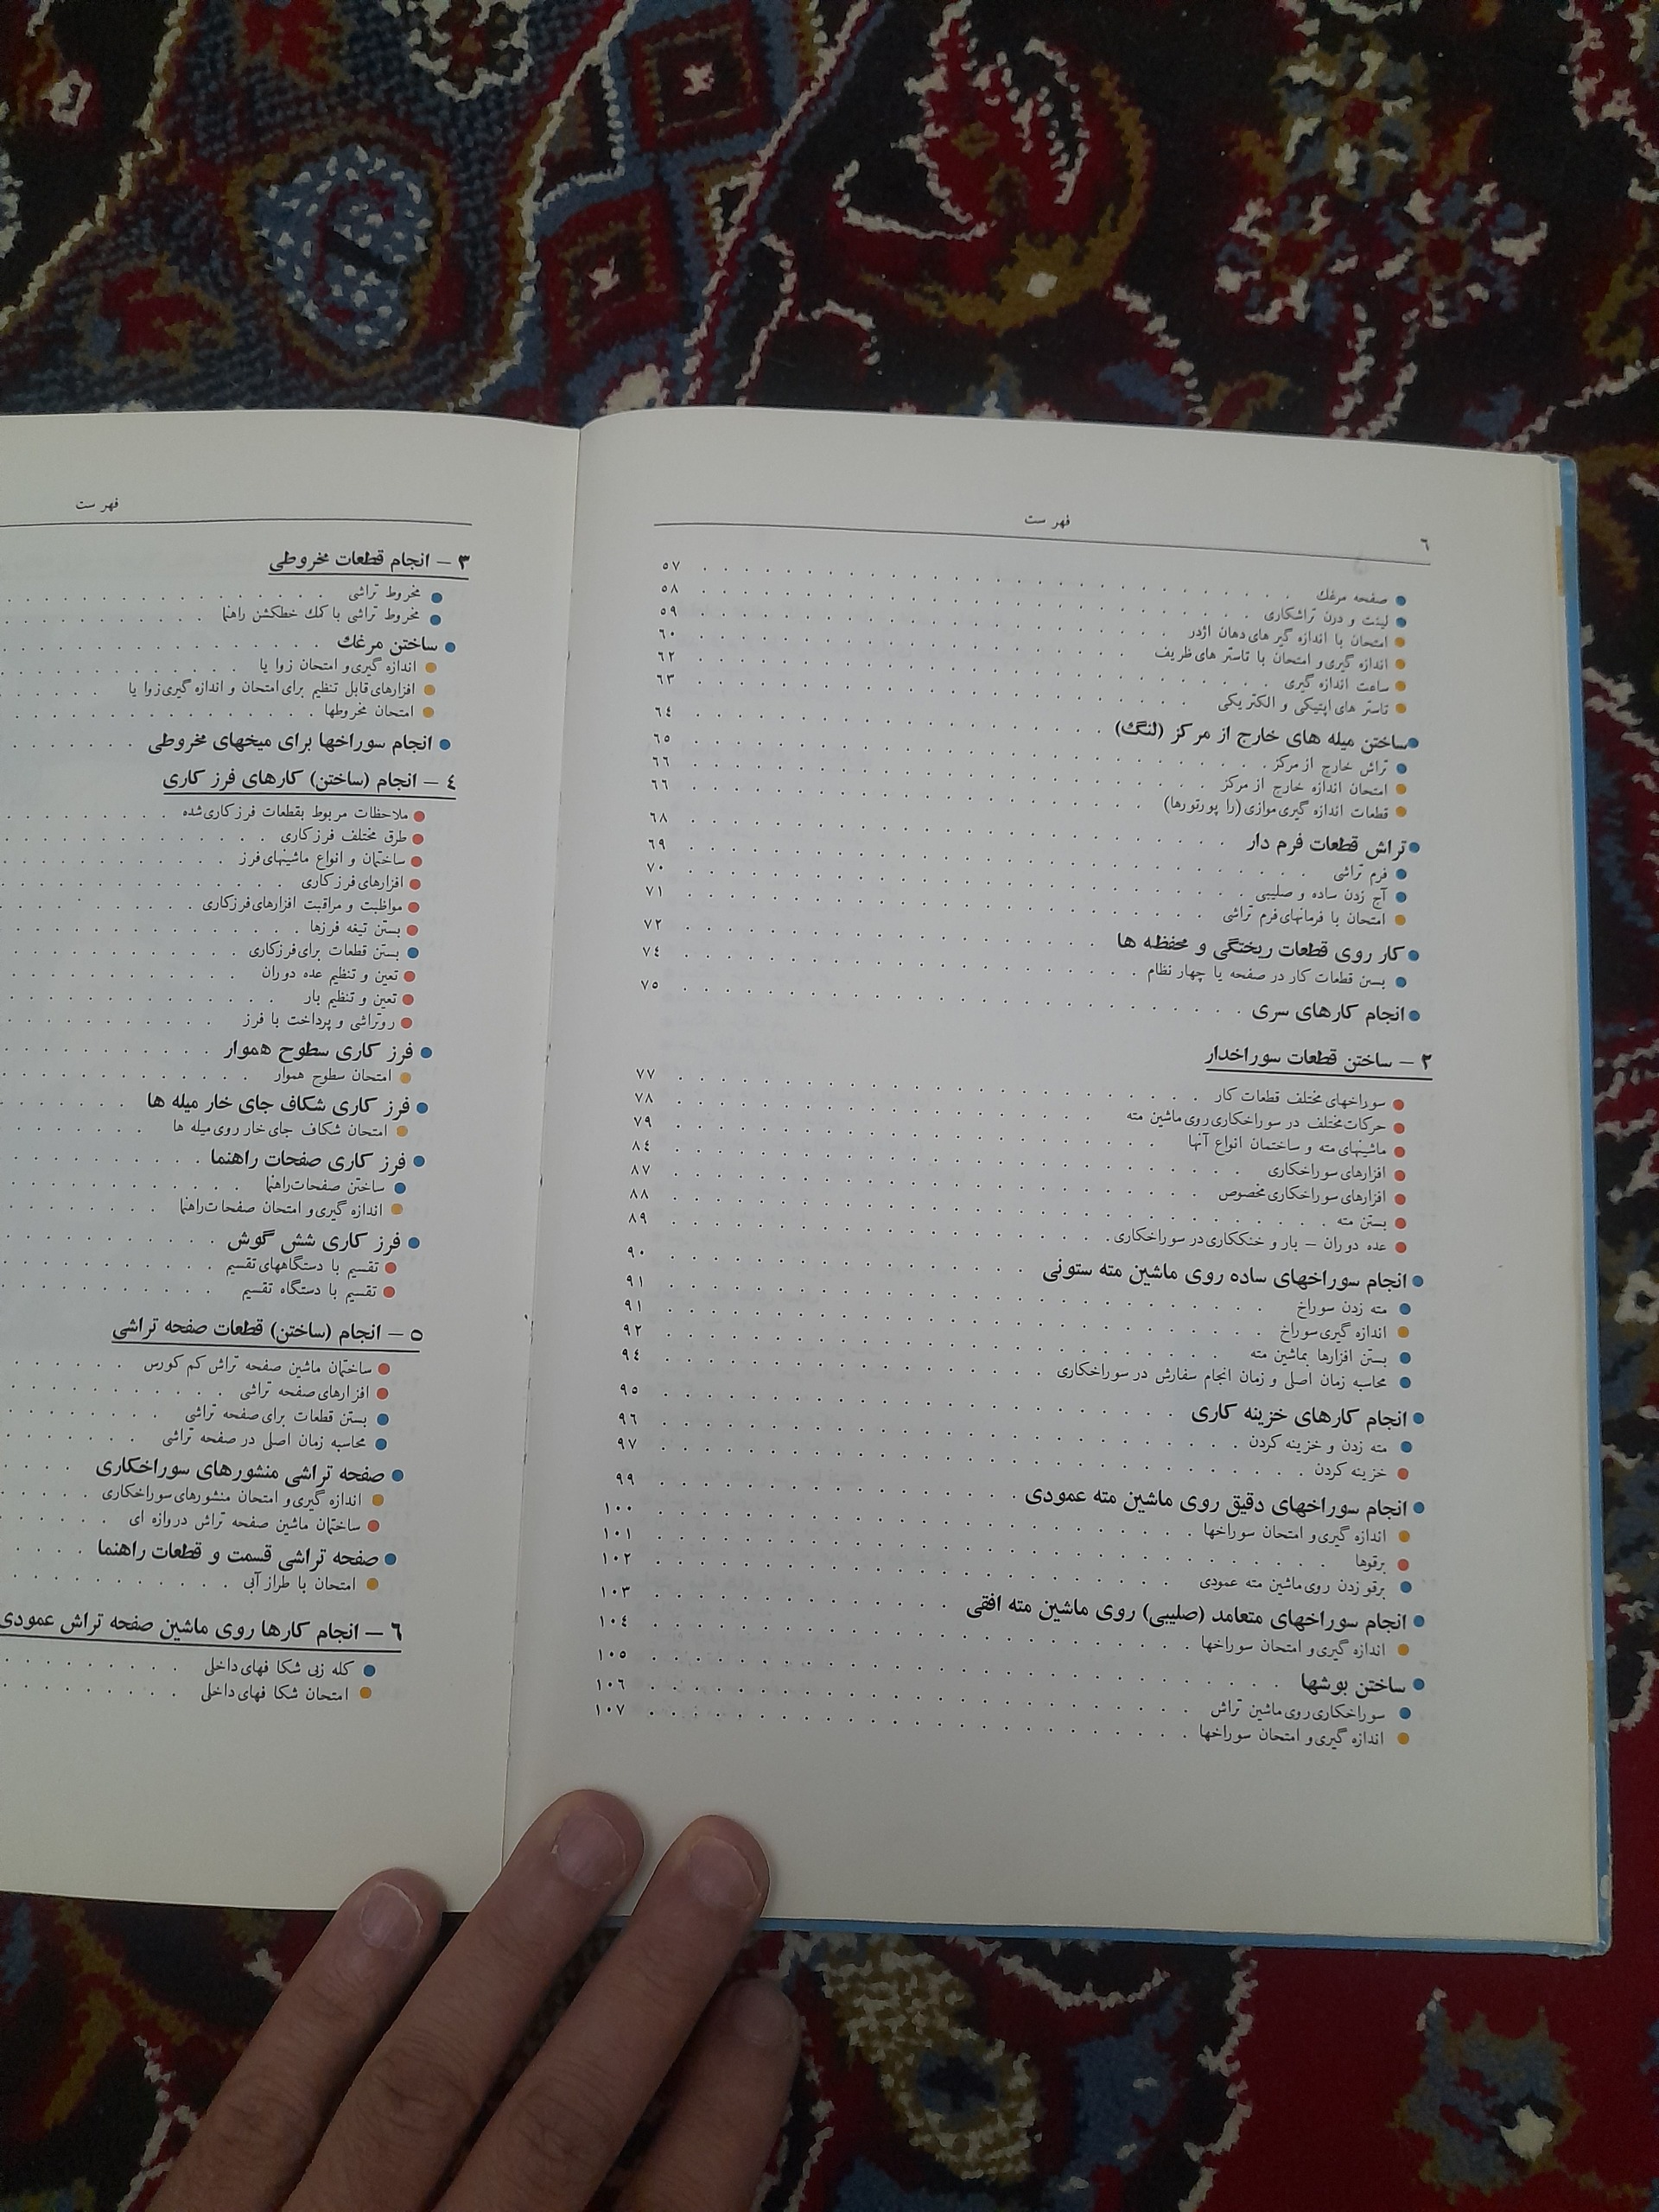 ٦
فهرست
صفحه مرغك ٥٧
لینت و درن تراشکاری ٥٨
امتحان با اندازه گیر های دهان اژدر ٥٩
اندازه گیری و امتحان با تاستر های ظریف ٦٠
ساعت اندازه گیری ٦٢
تاستر های اپتیکی و الکتریکی ٦٣
ساختن میله های خارج از مرکز (لنگ) ٦٤
تراش خارج از مرکز ٦٥
امتحان اندازه خارج از مرکز ٦٦
قطعات اندازه گیری موازی (را پورتورها) ٦٦
تراش قطعات فرم دار ٦٨
فرم تراشی ٦٩
آج زدن ساده و صلیبی ٧٠
امتحان با فرمانهای فرم تراشی ٧١
کار روی قطعات ریختگی و محفظه ها ٧٢
بستن قطعات کار در صفحه یا چهار نظام ٧٤
انجام کارهای سری ٧٥
٢ – ساختن قطعات سوراخدار
سوراخهای مختلف قطعات کار ٧٧
حرکات مختلف در سوراخکاری روی ماشین مته ٧٨
ماشینهای مته و ساختمان انواع آنها ٧٩
افزارهای سوراخکاری ٨٤
افزارهای سوراخکاری مخصوص ٨٧
بستن مته ٨٨
عده دوران – بار و خنککاری در سوراخکاری ٨٩
انجام سوراخهای ساده روی ماشین مته ستونی ٩٠
مته زدن سوراخ ٩١
اندازه گیری سوراخ ٩١
بستن افزارها بماشین مته ٩٢
محاسبه زمان اصلی و زمان انجام سفارش در سوراخکاری ٩٤
انجام کارهای خزینه کاری ٩٥
مته زدن و خزینه کردن ٩٦
خزینه کردن ٩٧
انجام سوراخهای دقیق روی ماشین مته عمودی ٩٩
اندازه گیری و امتحان سوراخها ١٠٠
برقوها ١٠١
برقو زدن روی ماشین مته عمودی ١٠٢
انجام سوراخهای متعامد (صلیبی) روی ماشین مته افقی ١٠٣
اندازه گیری و امتحان سوراخها ١٠٤
ساختن بوشها ١٠٥
سوراخکاری روی ماشین تراش ١٠٦
اندازه گیری و امتحان سوراخها ١٠٧
فهرست
٣ – انجام قطعات مخروطی
مخروط تراشی
مخروط تراشی با کمك خطکشن راهنما
ساختن مرغك
اندازه گیری و امتحان زوا یا
افزارهای قابل تنظیم برای امتحان و اندازه گیری زوا یا
امتحان مخروطها
انجام سوراخها برای میخهای مخروطی
٤ – انجام (ساختن) کارهای فرز کاری
ملاحظات مربوط بقطعات فرز کاری شده
طرق مختلف فرز کاری
ساختمان و انواع ماشینهای فرز
افزارهای فرز کاری
مواظبت و مراقبت افزارهای فرزکاری
بستن تیغه فرزها
بستن قطعات برای فرزکاری
تعین و تنظیم عده دوران
تعین و تنظیم بار
روتراشی و پرداخت با فرز
فرز کاری سطوح هموار
امتحان سطوح هموار
فرز کاری شکاف جای خار میله ها
امتحان شکاف جای خار روی میله ها
فرز کاری صفحات راهنما
ساختن صفحات راهنما
اندازه گیری و امتحان صفحات راهنما
فرز کاری شش گوش
تقسیم با دستگاههای تقسیم
تقسیم با دستگاه تقسیم
٥ – انجام (ساختن) قطعات صفحه تراشی
ساختمان ماشین صفحه تراش کم کورس
افزارهای صفحه تراشی
بستن قطعات برای صفحه تراشی
محاسبه زمان اصلی در صفحه تراشی
صفحه تراشی منشورهای سوراخکاری
اندازه گیری و امتحان منشورهای سوراخکاری
ساختمان ماشین صفحه تراش دروازه ای
صفحه تراشی قسمت و قطعات راهنما
امتحان با طراز آبی
٦ – انجام کارها روی ماشین صفحه تراش عمودی
کله زنی شکا فهای داخلی
امتحان شکا فهای داخلی